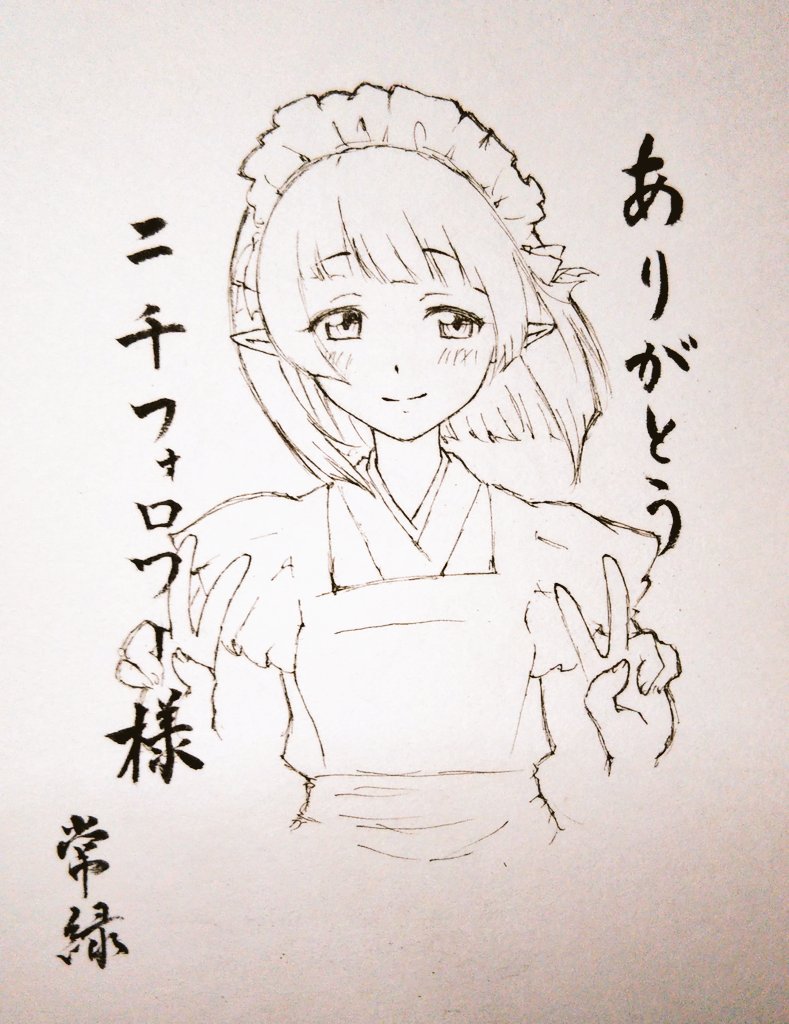 ありがとう
二千フォロワー様
常緑